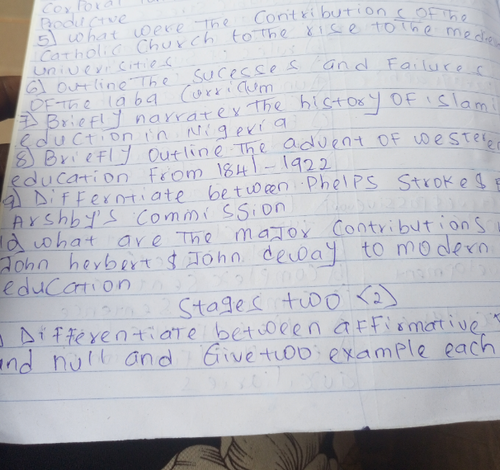 Corporal
Productive
5) What were The Contributions OF The
Catholic Church to the rise to The med
Universities
6) Outline The Sucesses and Failures
OF The laba Curriculum
7) Briefly narrater The history OF islam
eduction in Nigeria
8) Briefly Outline The advent OF wester
education From 1841 - 1922
9) Differntiate between Phelps Stroke &
Arshby's Commission
10 What are The major Contributions
John herbert & John deway to modern
education
Stages two (2)
) Differentiate between affirmative
and null and Give two example each